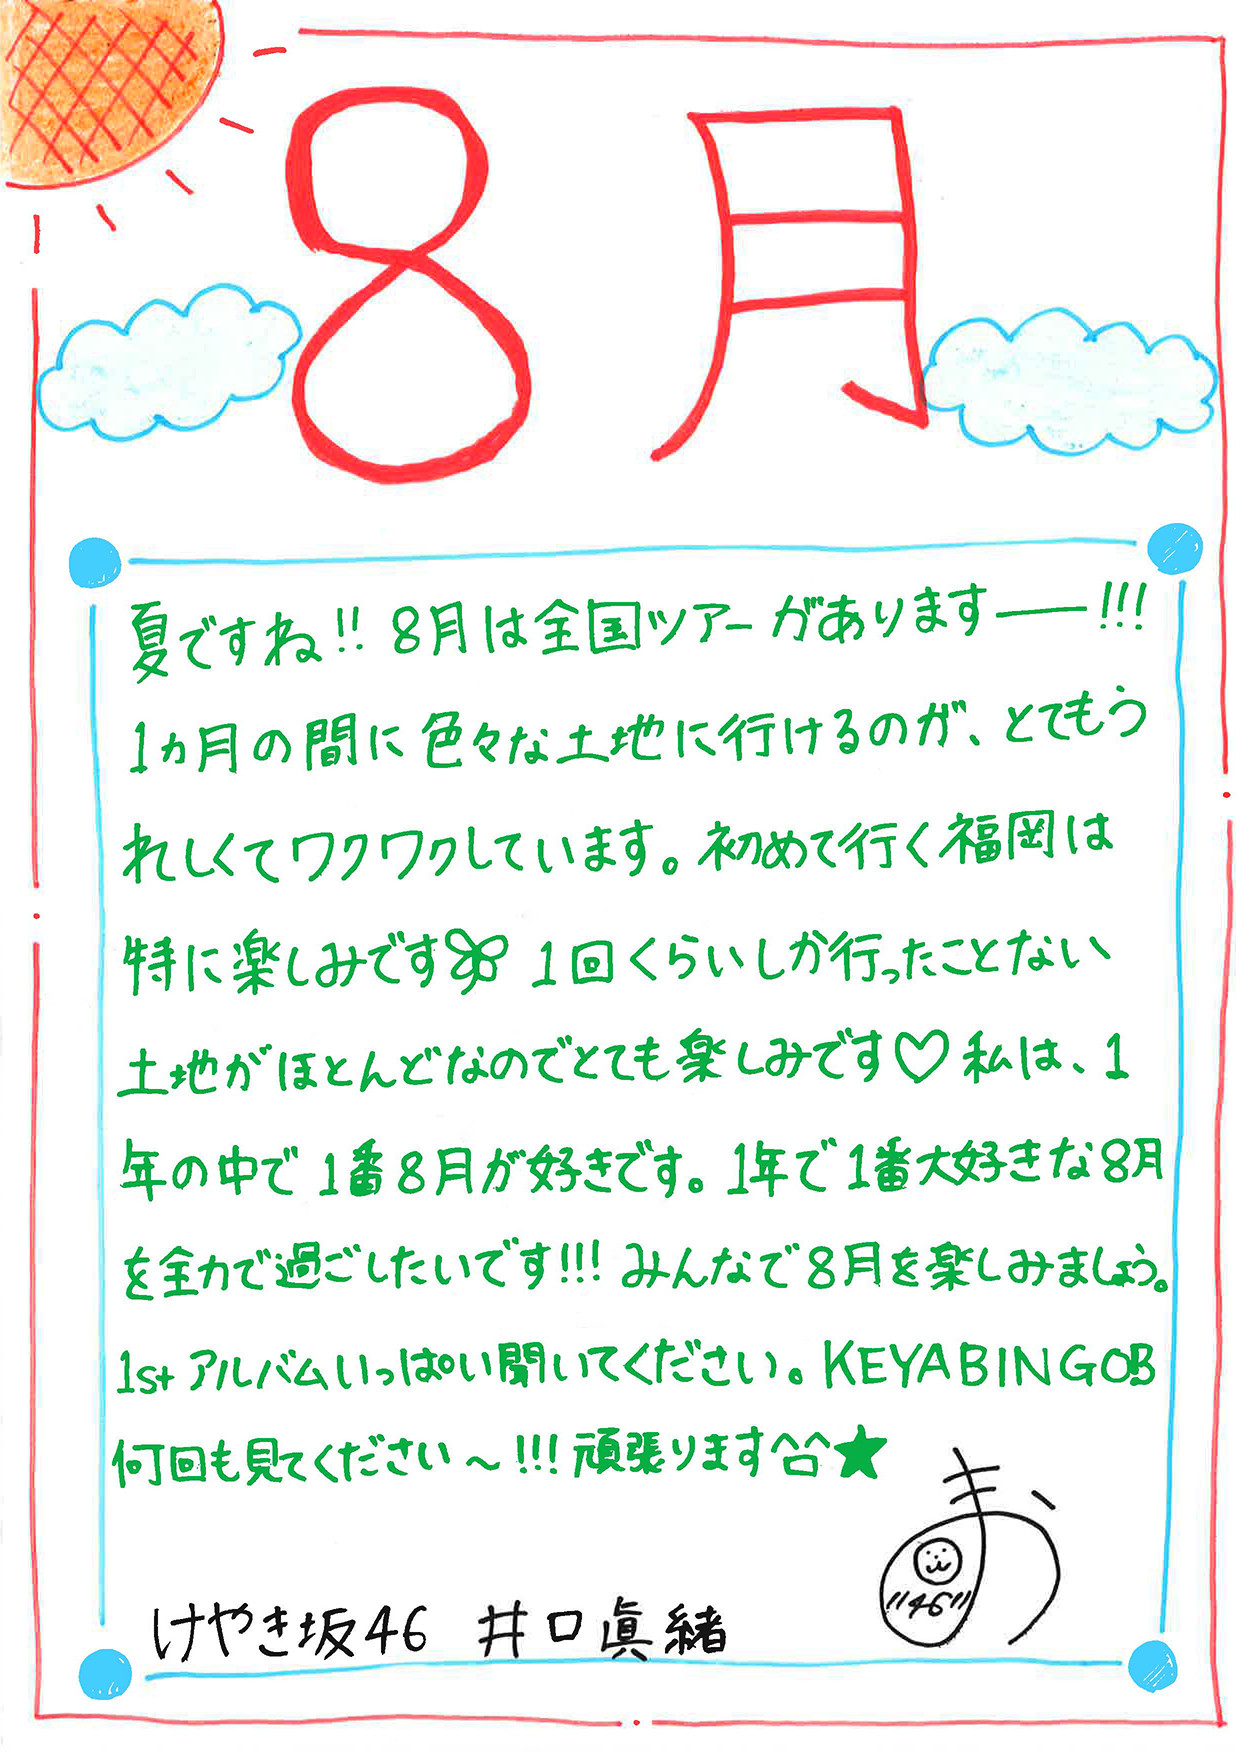 8月
夏ですね!! 8月は全国ツアーがあります――!!!
1ヵ月の間に色々な土地に行けるのが、とてもう
れしくてワクワクしています。初めて行く福岡は
特に楽しみです 1回くらいしか行ったことない
土地がほとんどなのでとても楽しみです♡私は、1
年の中で1番8月が好きです。1年で1番大好きな8月
を全力で過ごしたいです!!!みんなで8月を楽しみましょう。
1stアルバムいっぱい聞いてください。KEYABINGO3
何回も見てください〜!!!頑張ります^ロ^★
まお
"46"
けやき坂46 井口眞緒